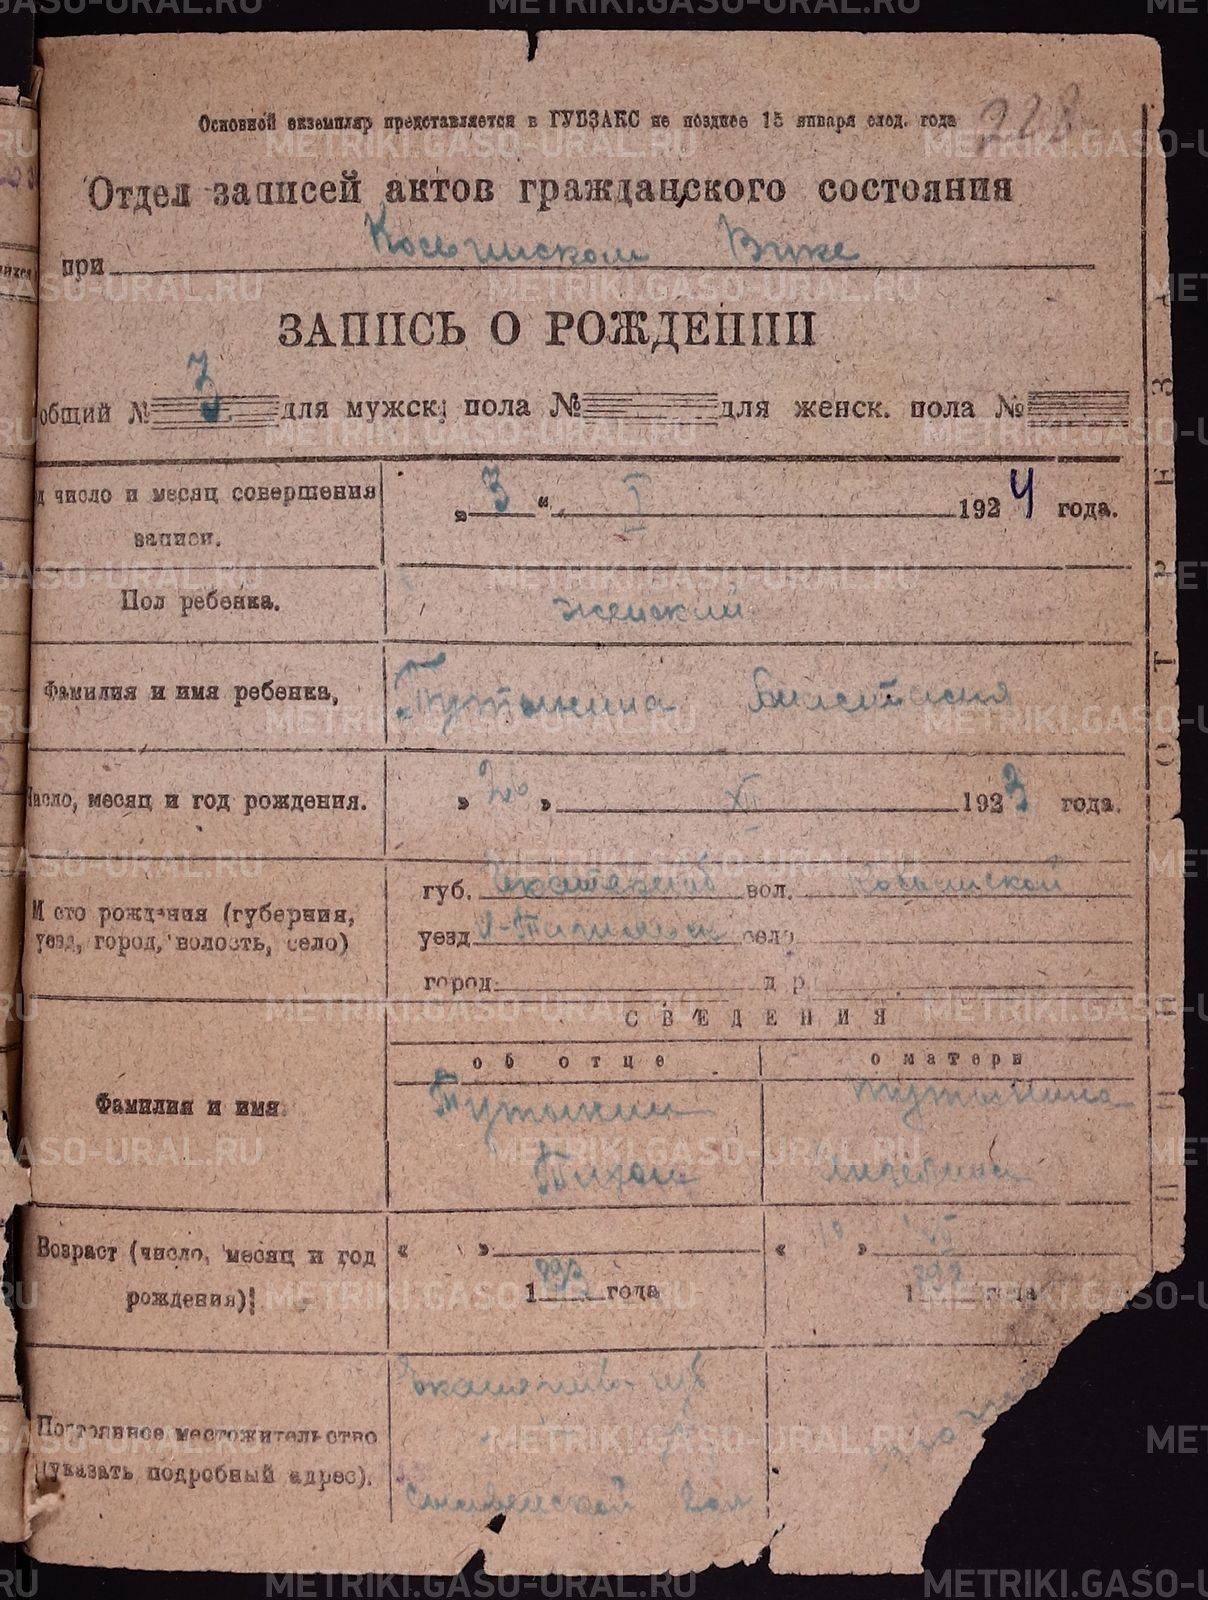 METRIKI.GASO-URAL.RU
228
Основной экземпляр представляется в ГУБЗАКС не позднее 15 января след. года
Отдел записей актов гражданского состояния
при Косьинском Вике
ЗАПИСЬ О РОЖДЕНИИ
общий № 3 для мужск. пола № для женск. пола №
число и месяц совершения записи.
„ 3 “ I 1924 года.
Пол ребенка.
женский
Фамилия и имя ребенка,
Путынина Анастасия
Число, месяц и год рождения.
„ 26 „ XII 1923 года.
М сто рождения (губерния, уезд, город, волость, село)
губ. Екатеринб вол. Косьинской
уезд село
город др.
СВЕДЕНИЯ
об отце
о матери
Фамилия и имя
Путынин
Тихон
Путынина
Ангелина
Возраст (число, месяц и год рождения)
« » 1 года
« 10 » VII 1 года
Постоянное местожительство (указать подробный адрес).
Екатеринб губ
вол
ПОД ОТРЕЗА